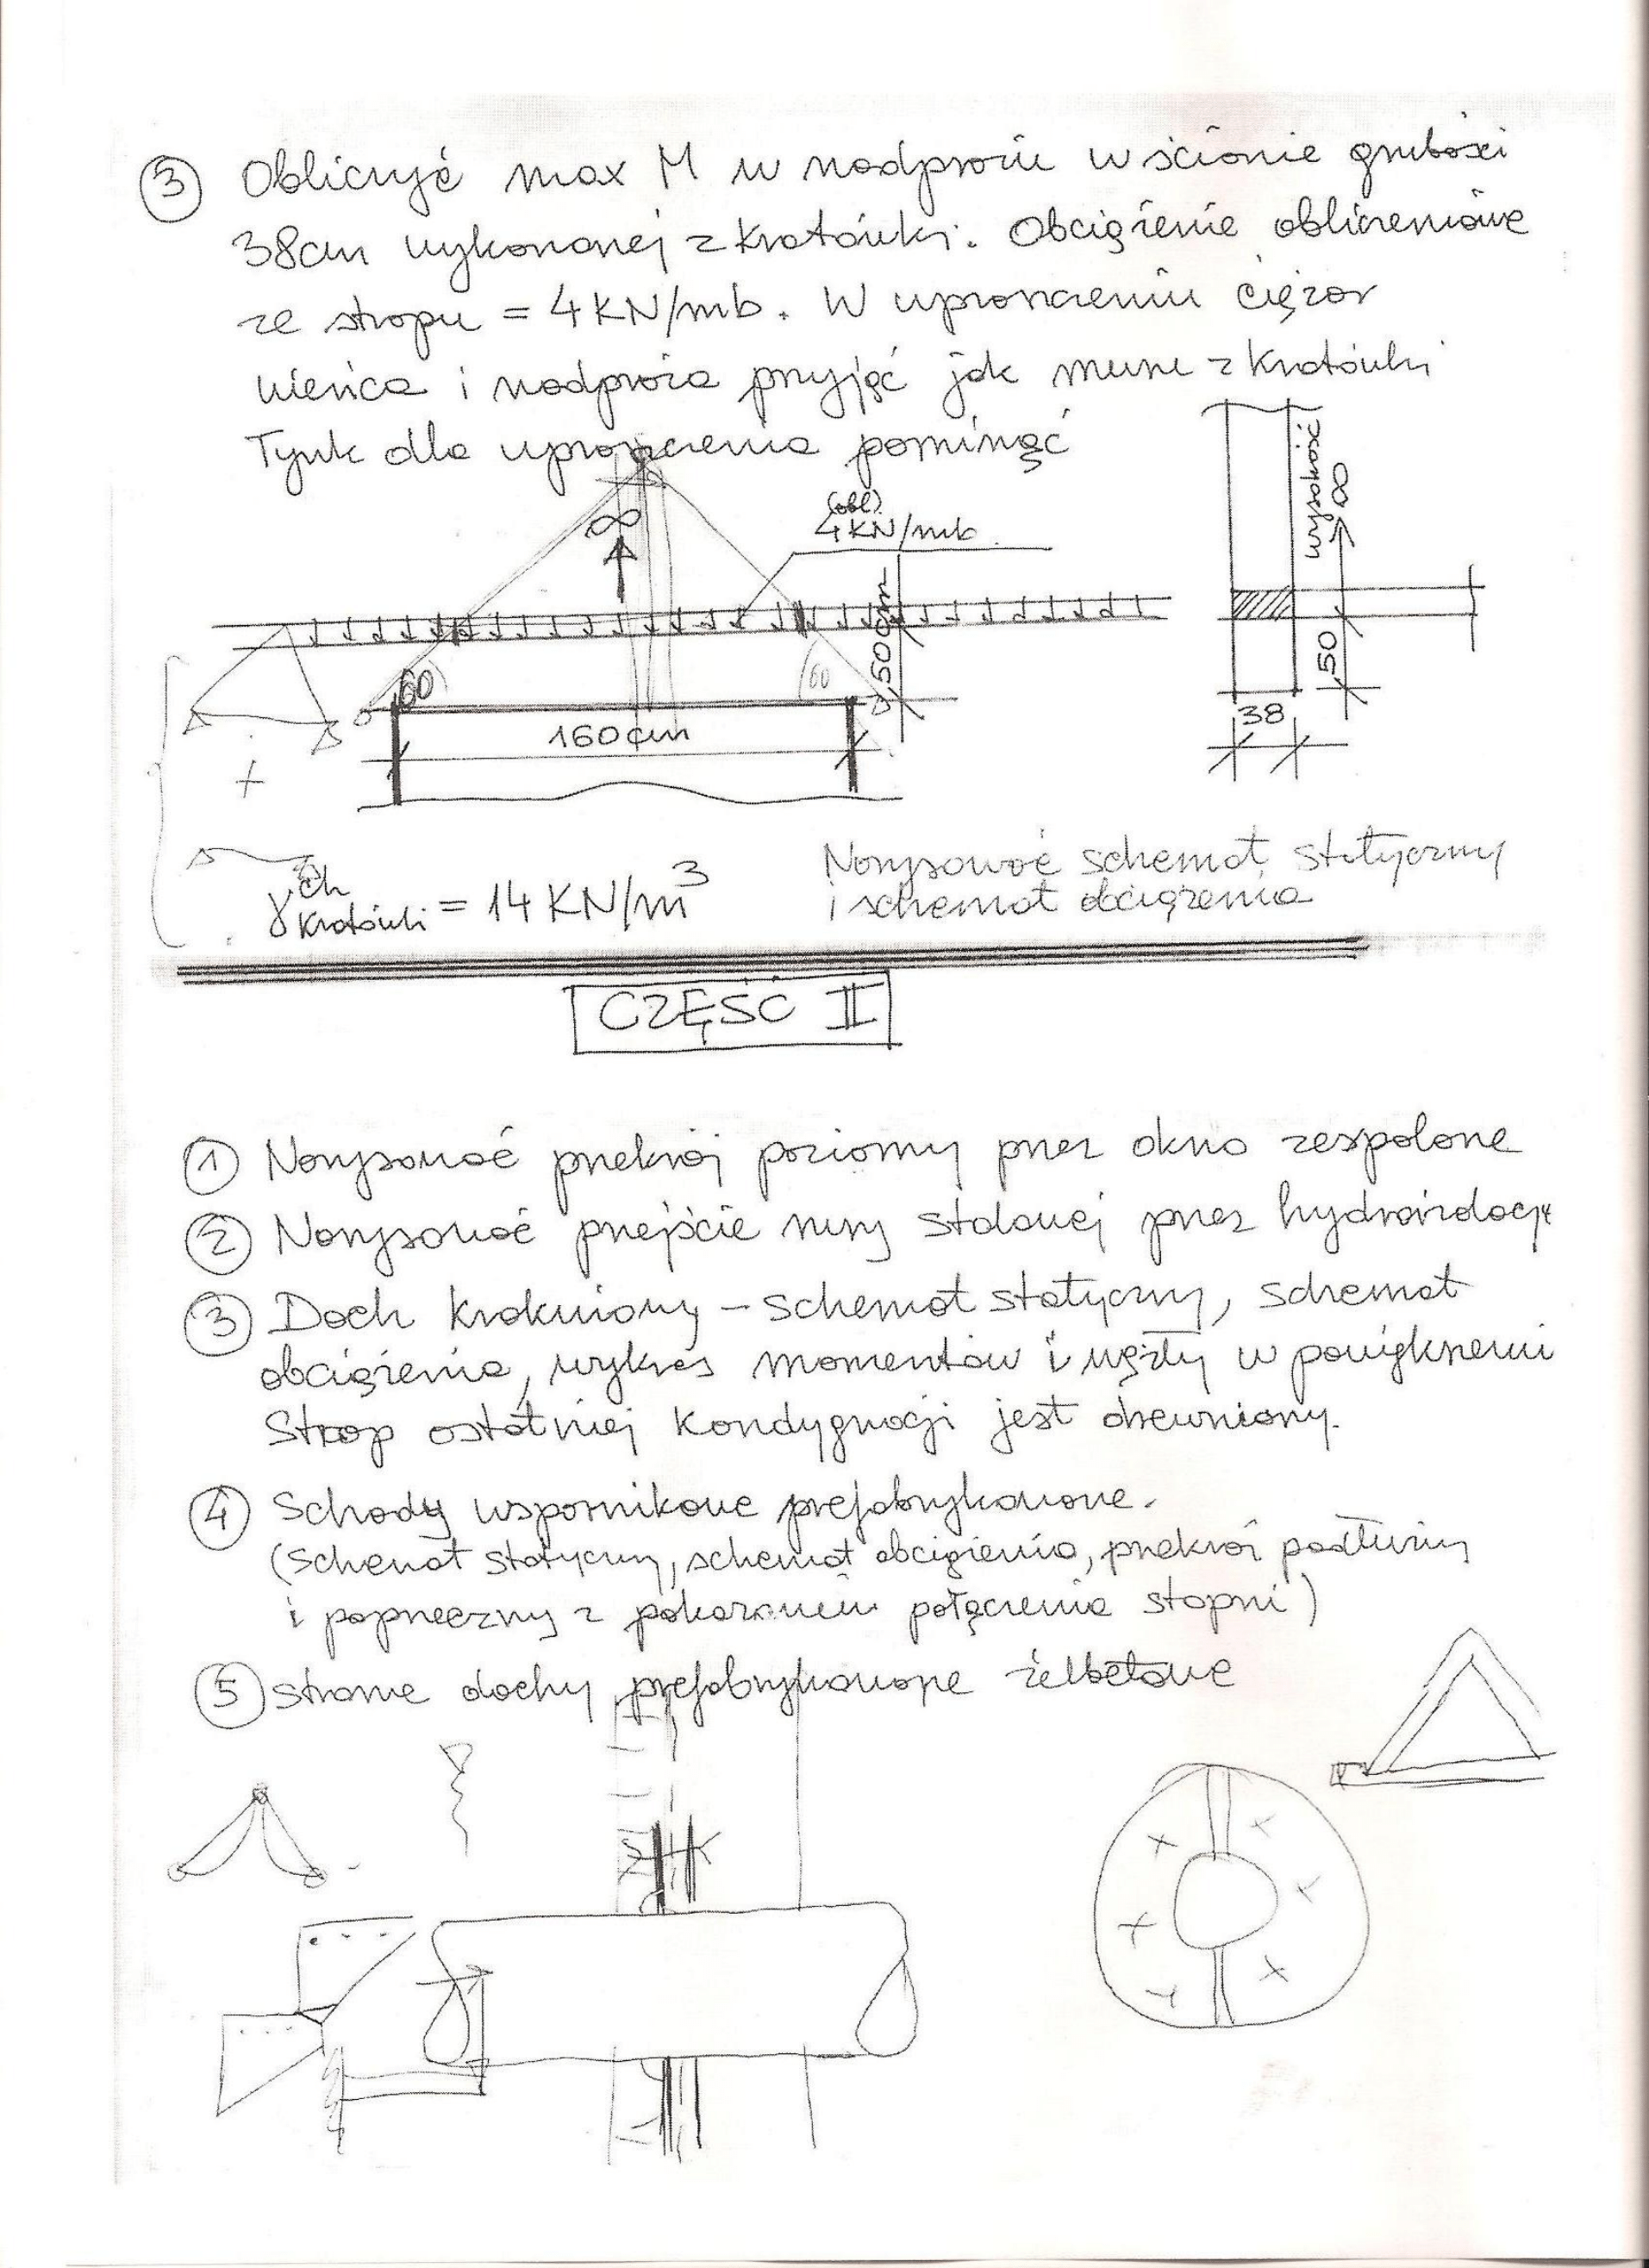 ③ Obliczyć max M w nadprożu w ścianie grubości
38cm wykonanej z kratówki. Obciążenie obliczeniowe
ze stropu = 4KN/mb. W uproszczeniu ciężar
wieńca i nadproża przyjąć jak muru z kratówki
Tynk dla uproszczenia pominąć
wysokość ∞
(obl)
4KN/mb
∞
50cm
60
60
160cm
50
38
+
γ ch kratówki = 14 KN/m³
Narysować schemat statyczny
i schemat obciążenia
CZĘŚĆ II
① Narysować przekrój poziomy przez okno zespolone
② Narysować przejście rury stalowej przez hydroizolację
③ Dach krokwiowy – schemat statyczny, schemat
obciążenia, wykres momentów i węzły w powiększeniu
Strop ostatniej kondygnacji jest drewniany.
④ Schody wspornikowe prefabrykowane.
(schemat statyczny, schemat obciążenia, przekrój podłużny
i poprzeczny z pokazaniem połączenia stopni)
⑤ strome dachy prefabrykowane żelbetowe